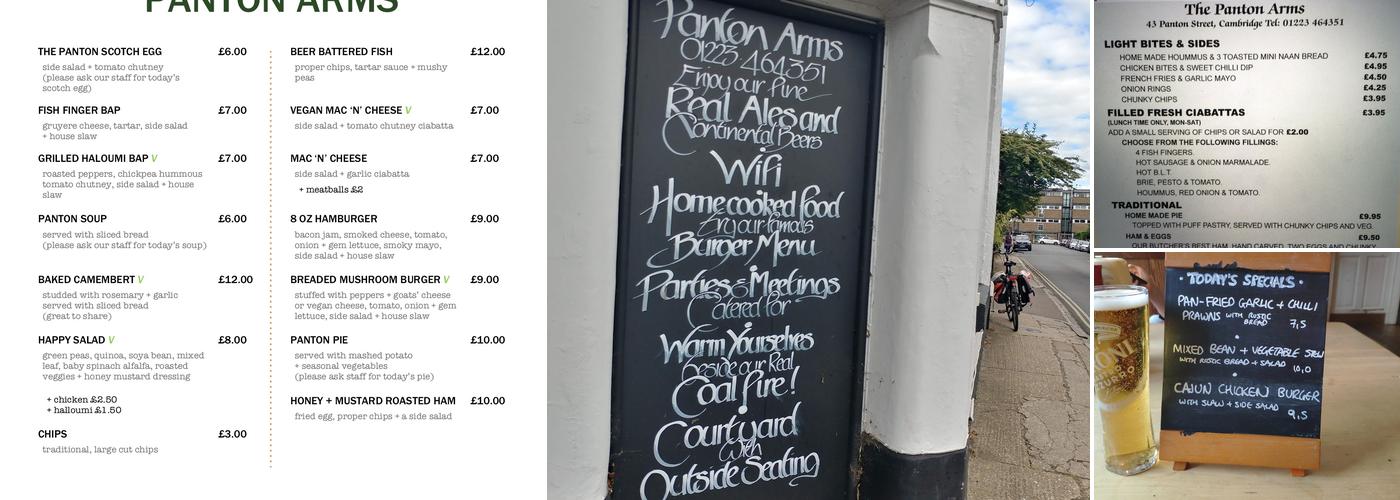 PANTON ARMS
THE PANTON SCOTCH EGG £6.00
side salad + tomato chutney
(please ask our staff for today's
scotch egg)
FISH FINGER BAP £7.00
gruyere cheese, tartar, side salad
+ house slaw
GRILLED HALOUMI BAP V £7.00
roasted peppers, chickpea hummous
tomato chutney, side salad + house
slaw
PANTON SOUP £6.00
served with sliced bread
(please ask our staff for today's soup)
BAKED CAMEMBERT V £12.00
studded with rosemary + garlic
served with sliced bread
(great to share)
HAPPY SALAD V £8.00
green peas, quinoa, soya bean, mixed
leaf, baby spinach alfalfa, roasted
veggies + honey mustard dressing
+ chicken £2.50
+ halloumi £1.50
CHIPS £3.00
traditional, large cut chips
BEER BATTERED FISH £12.00
proper chips, tartar sauce + mushy
peas
VEGAN MAC 'N' CHEESE V £7.00
side salad + tomato chutney ciabatta
MAC 'N' CHEESE £7.00
side salad + garlic ciabatta
+ meatballs £2
8 OZ HAMBURGER £9.00
bacon jam, smoked cheese, tomato,
onion + gem lettuce, smoky mayo,
side salad + house slaw
BREADED MUSHROOM BURGER V £9.00
stuffed with peppers + goats' cheese
or vegan cheese, tomato, onion + gem
lettuce, side salad + house slaw
PANTON PIE £10.00
served with mashed potato
+ seasonal vegetables
(please ask staff for today's pie)
HONEY + MUSTARD ROASTED HAM £10.00
fried egg, proper chips + a side salad
Panton Arms
01223 464351
Enjoy our Fine
Real Ales and
Continental Beers
Wifi
Home cooked food
Try our famous
Burger Menu
Parties & Meetings
Catered for
Warm Yourselves
beside our Real
Coal fire!
Courtyard
With
Outside Seating
The Panton Arms
43 Panton Street, Cambridge Tel: 01223 464351
LIGHT BITES & SIDES
HOME MADE HOUMMUS & 3 TOASTED MINI NAAN BREAD £4.75
CHICKEN BITES & SWEET CHILLI DIP £4.95
FRENCH FRIES & GARLIC MAYO £4.50
ONION RINGS £4.25
CHUNKY CHIPS £3.95
FILLED FRESH CIABATTAS £3.95
(LUNCH TIME ONLY, MON-SAT)
ADD A SMALL SERVING OF CHIPS OR SALAD FOR £2.00
CHOOSE FROM THE FOLLOWING FILLINGS:
4 FISH FINGERS.
HOT SAUSAGE & ONION MARMALADE.
HOT B.L.T.
BRIE, PESTO & TOMATO.
HOUMMUS, RED ONION & TOMATO.
TRADITIONAL
HOME MADE PIE £9.95
TOPPED WITH PUFF PASTRY, SERVED WITH CHUNKY CHIPS AND VEG.
HAM & EGGS £9.50
OUR BUTCHER'S BEST HAM, HAND CARVED, TWO EGGS AND CHUNKY
· TODAY'S SPECIALS ·
PAN-FRIED GARLIC + CHILLI
PRAWNS WITH RUSTIC
BREAD 7,5
MIXED BEAN + VEGETABLE STEW
WITH RUSTIC BREAD + SALAD 10,0
CAJUN CHICKEN BURGER
WITH SLAW + SIDE SALAD 9,5